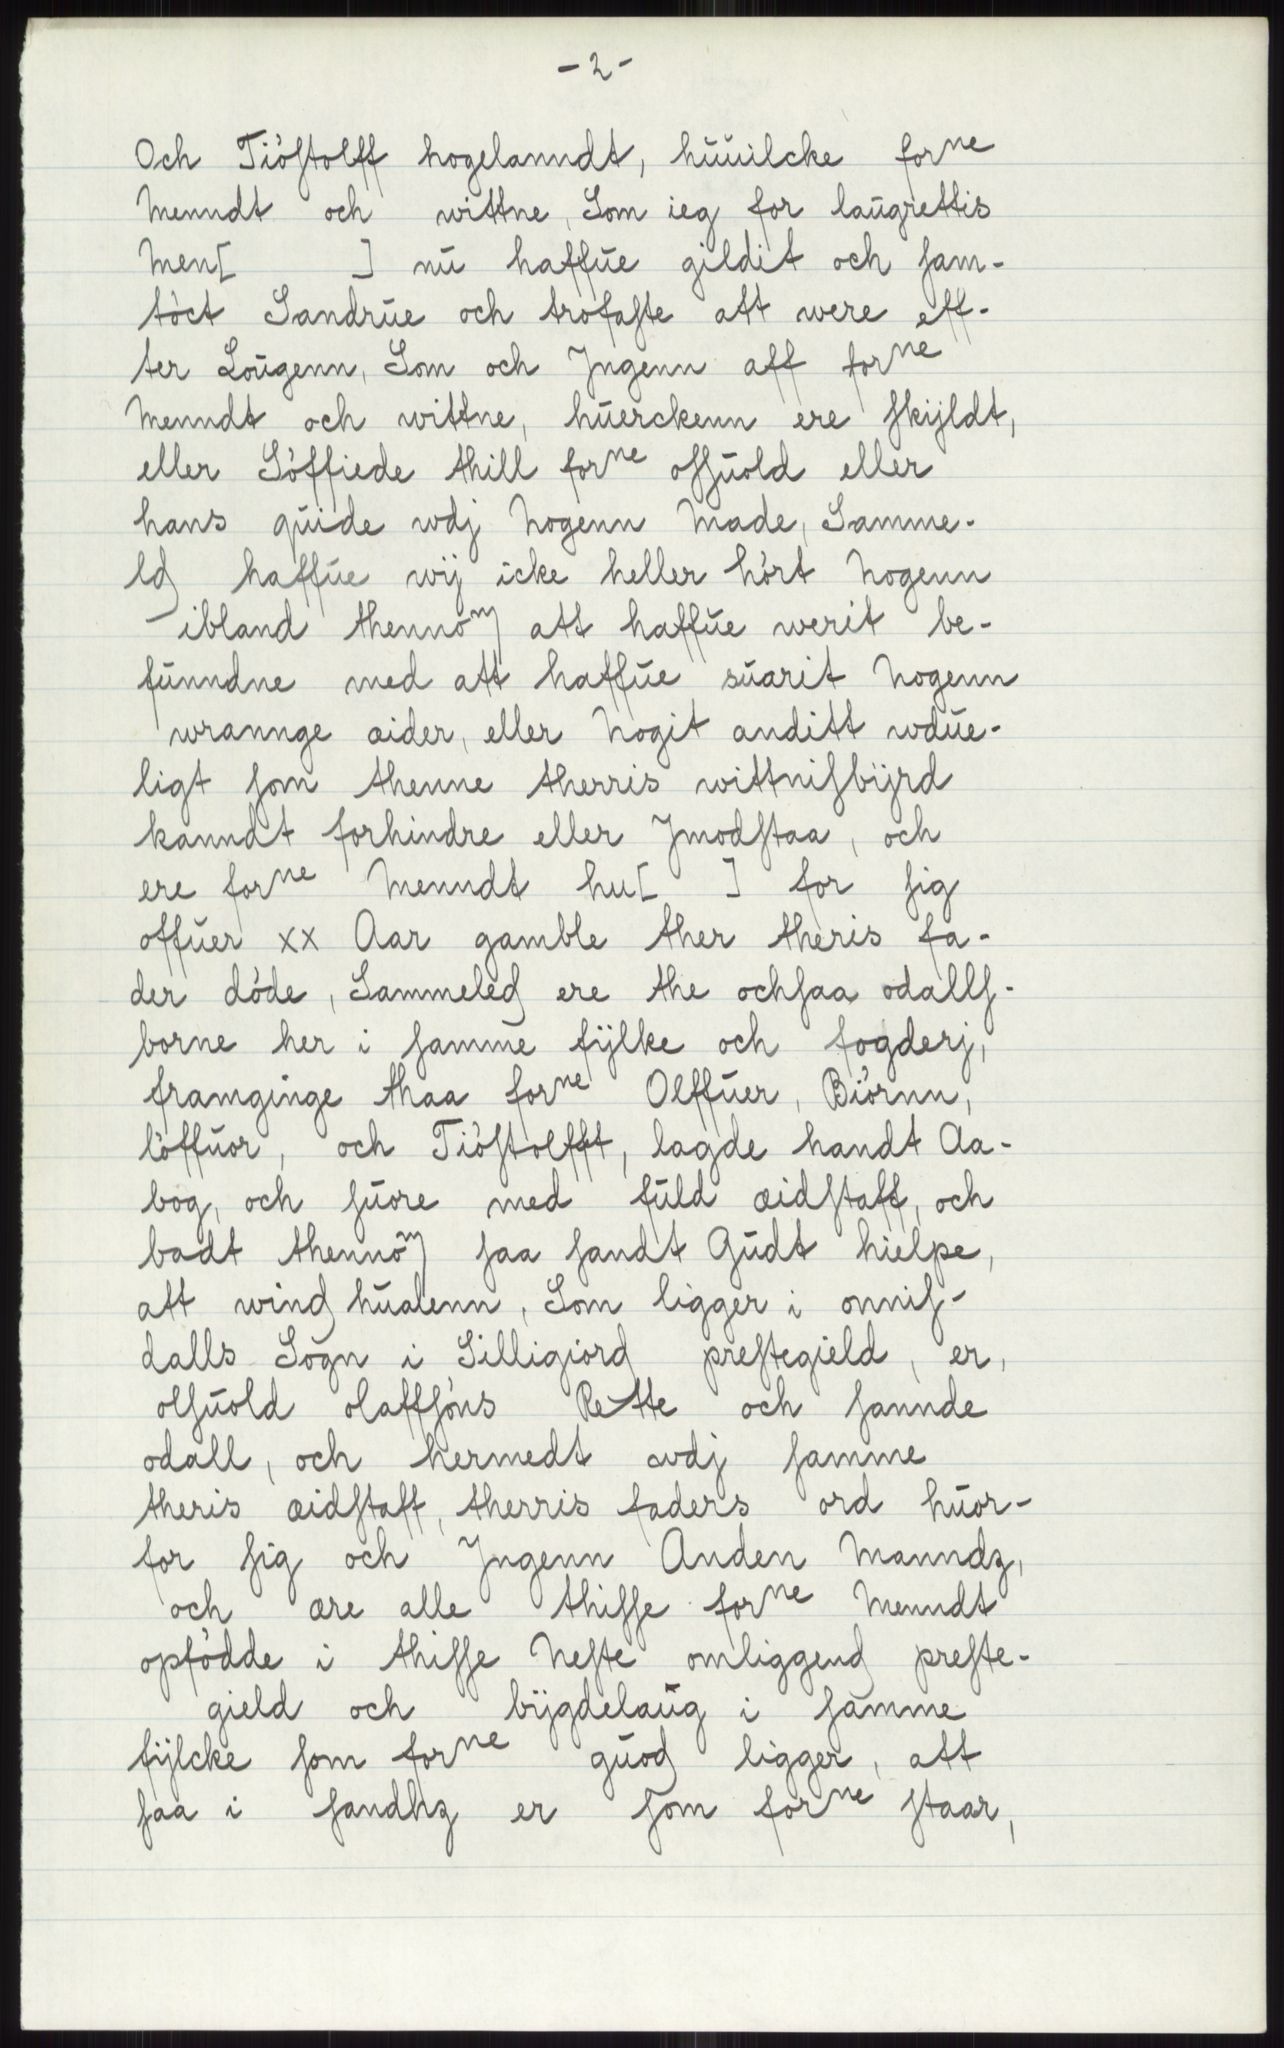 - 2 -
Och Tióſtolff hogelanndt, huuilcke forne
Menndt och wittne, Som ieg for laugrettis
Men[ ] nu haffue gildit och ſam-
tóct Sandrue och trofaſte att were eff-
ter Lougenn, Som och Jngenn aff forne
Menndt och wittne, huerckenn ere ſkijldt,
eller Sóffiede thill forne oſſuold eller
hans quide wdj Nogenn Made, Samme-
lꝭ haffue wij icke heller hórt Nogenn
ibland thennom att haffue werit be-
funndne med att haffue suarit Nogenn
wrannge æider, eller Nogit anditt wdue-
ligt ſom thenne therris wittniſbijrd
kanndt forhindre eller Jmodſtaa, och
ere forne Menndt hu[ ] for ſig
offuer xx Aar gamble ther theris fa-
der dóde, Sammeledꝭ ere the ochſaa odallſ-
borne her i ſamme fijlke och fogderj,
framginge thaa forne Olffuer, Biórnn,
lóffuor, och Tióſtolfft, lagde handt Aa-
bog, och ſuore med fuld æidſtaff, och
badt thennom ſaa ſandt Gudt hielpe,
att windꝭhualenn, Som ligger i onniſ-
dalls Sogn i Silligiordꝭ preſtegield, er,
olſuold olaffſóns Rette och ſannde
odall, och hermedt wdj ſamme
theris æidſtaff, therris faders ord huor-
for ſig och Jngenn Anden Manndz,
och ære alle thiſſe forne Menndt
opfódde i thiſſe Neſte omliggendꝭ preſte-
gield och bijgdelaug i ſamme
fijlcke ſom forne guodꝭ ligger, att
ſaa i ſandhz er ſom forne ſtaar,